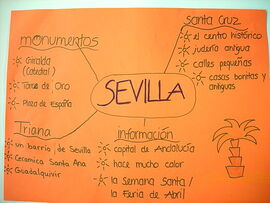 monumentos
Giralda
(Catedral)
Torre de Oro
Plaza de España
Santa Cruz
el centro histórico
judería antigua
calles pequeñas
casas bonitas y
antiguas
SEVILLA
Triana
un barrio de Sevilla
Ceramica Santa Ana
Guadalquivir
información
capital de Andalucía
hace mucho calor
la Semana Santa /
la Feria de Abril